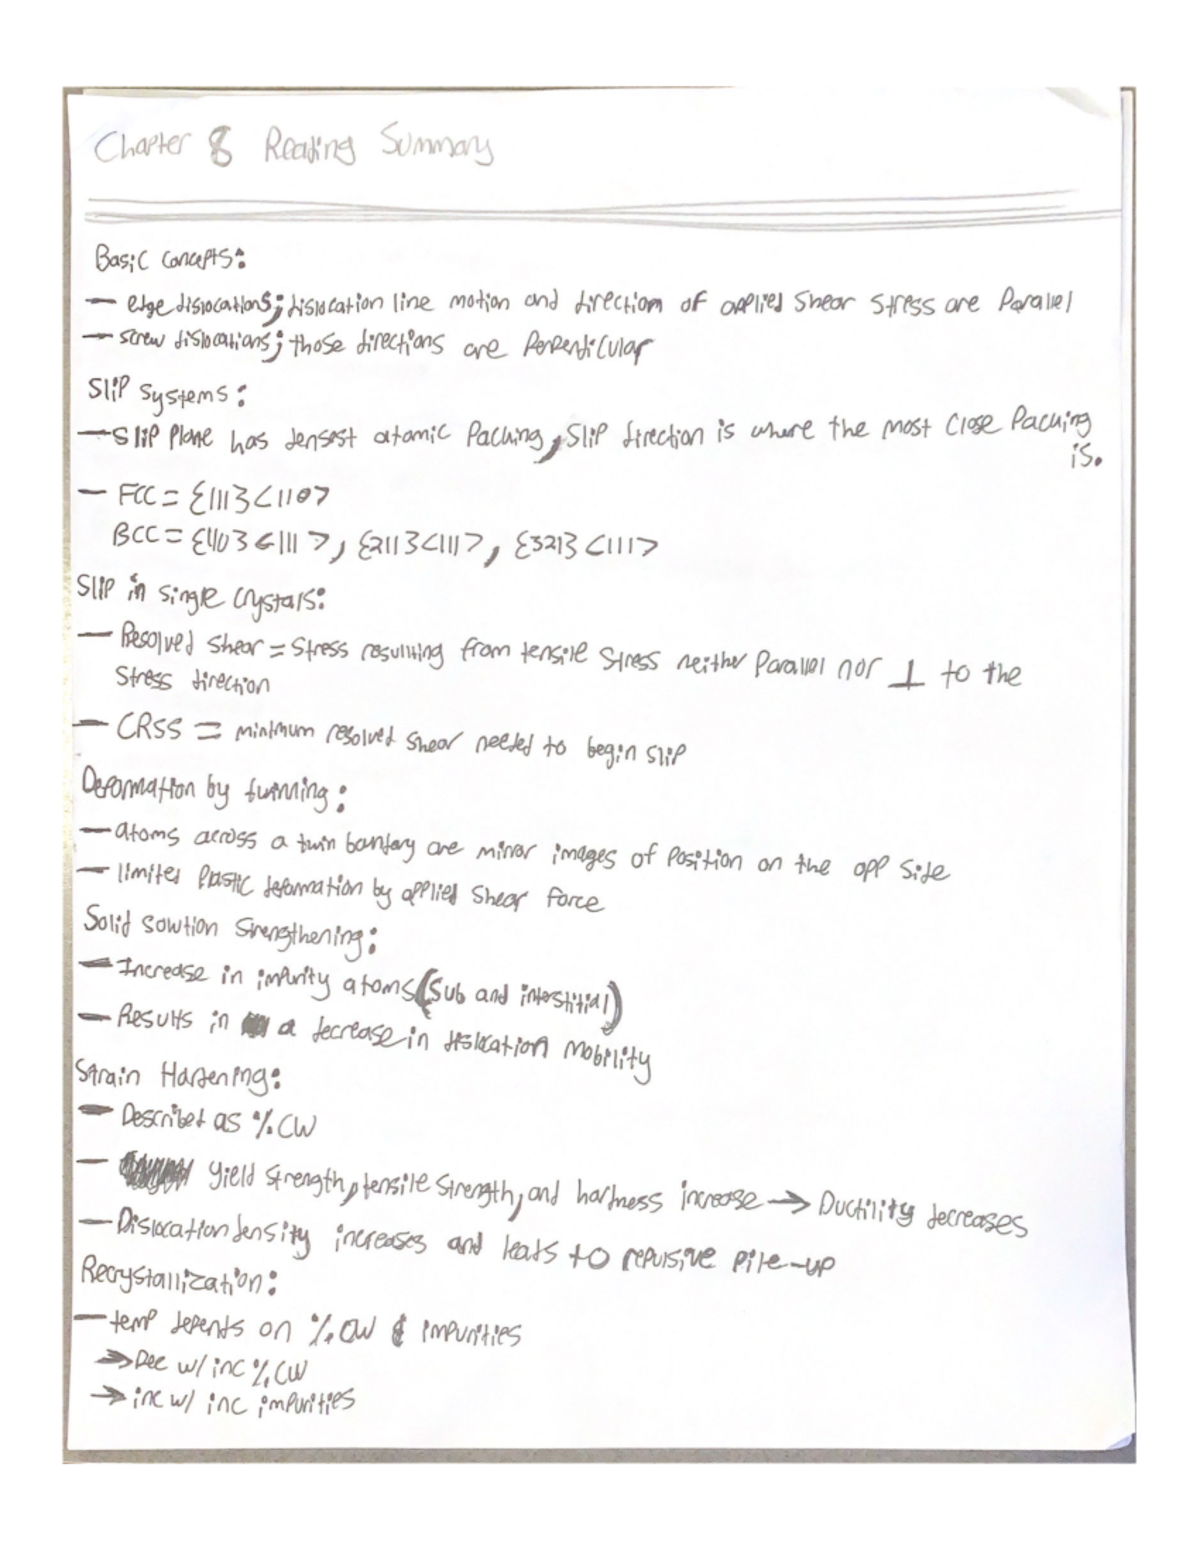 Chapter 8 Reading Summary
Basic Concepts:
— edge dislocations; dislocation line motion and direction of applied shear stress are Parallel
— screw dislocations; those directions are Perpendicular
Slip Systems:
— Slip Plane has densest atomic Packing, Slip direction is where the most Close Packing
is.
— FCC = {111}<110>
BCC = {110}<111>, {211}<111>, {321}<111>
Slip in single crystals:
— Resolved shear = Stress resulting from tensile stress neither Parallel nor ⊥ to the
Stress direction
— CRSS = minimum resolved shear needed to begin slip
Deformation by twinning:
— atoms across a twin boundary are mirror images of Position on the opp side
— limited Plastic deformation by applied shear force
Solid solution Strengthening:
— Increase in impurity atoms (Sub and interstitial)
— Results in a decrease in dislocation mobility
Strain Hardening:
— Described as %CW
— yield strength, tensile strength, and hardness increase → Ductility decreases
— Dislocation density increases and leads to repulsive pile-up
Recrystallization:
— temp depends on %CW & impurities
→ Dec w/ inc %CW
→ inc w/ inc impurities